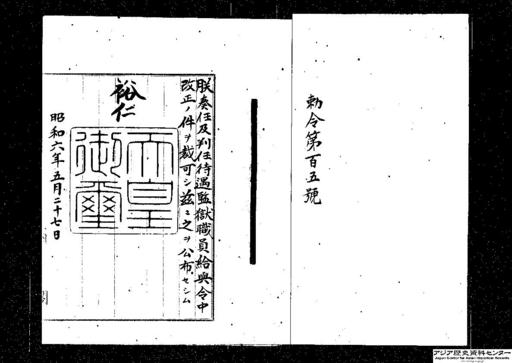 勅令第百五號
朕奏任及判任待遇監獄職員給與令中
改正ノ件ヲ裁可シ茲ニ之ヲ公布セシム
裕仁
天皇
御璽
昭和六年五月二十七日
アジア歴史資料センター
Japan Center for Asian Historical Records